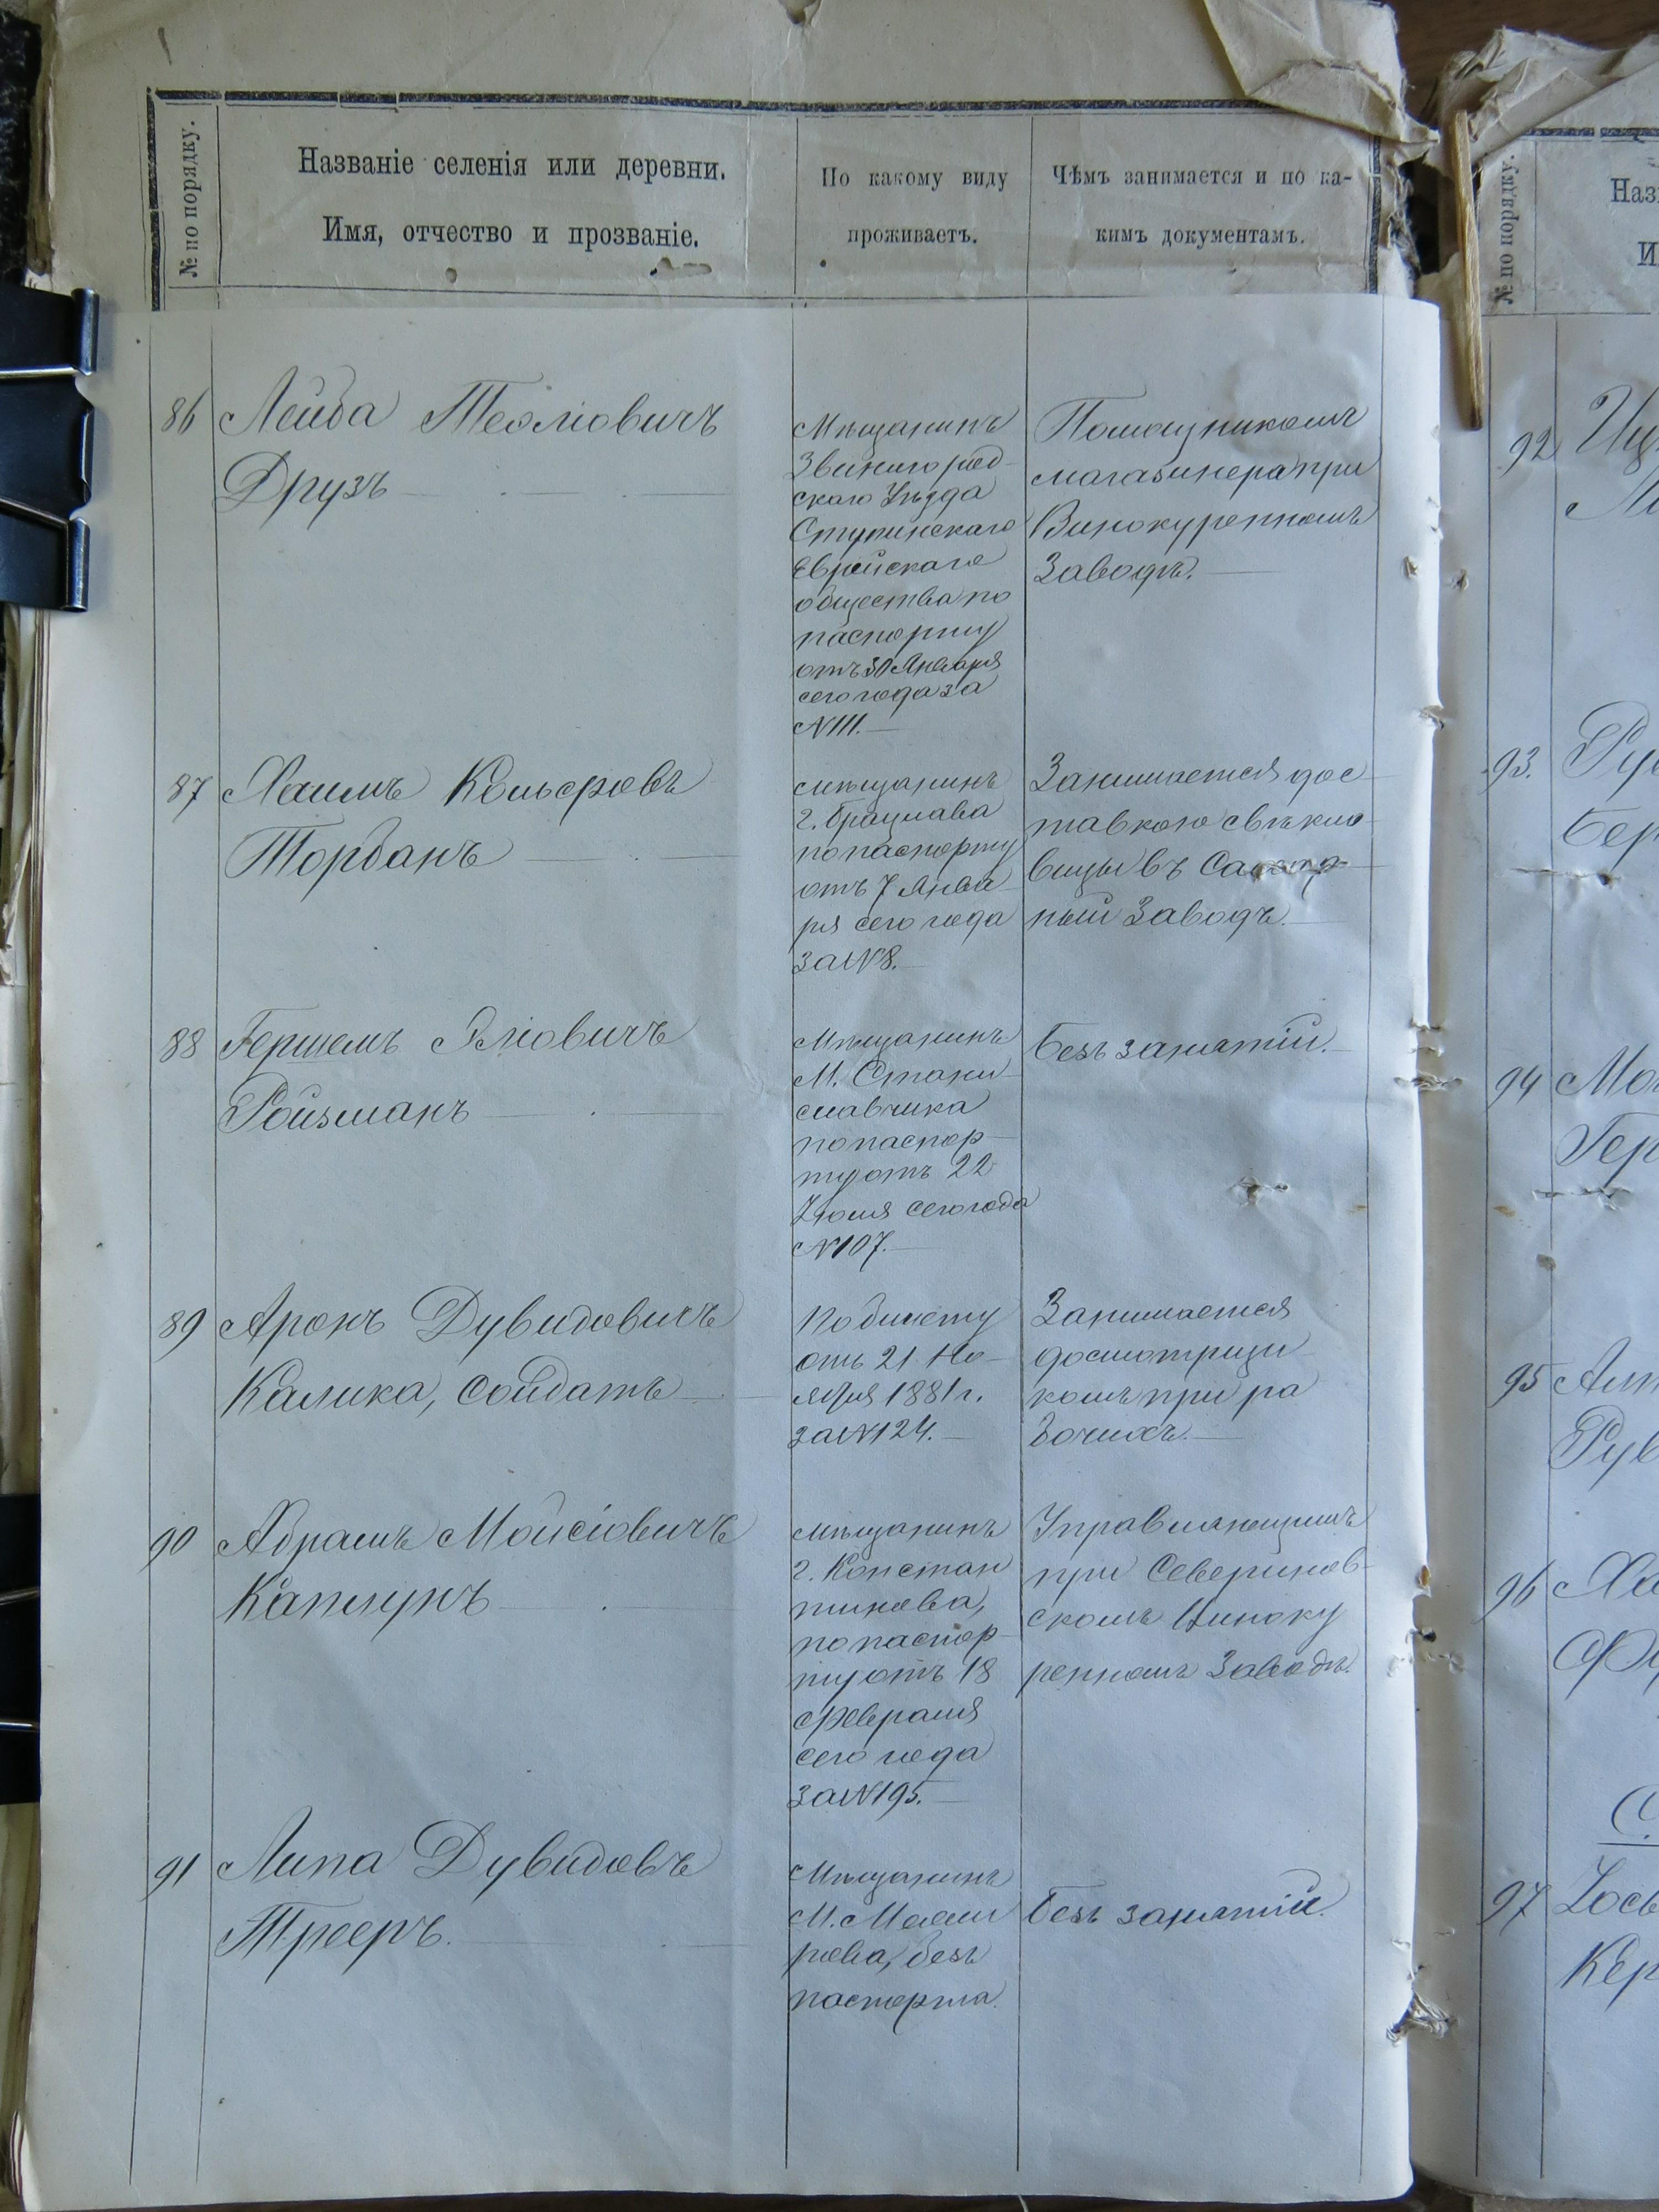 № по порядку.
Названіе селенія или деревни.
Имя, отчество и прозваніе.
По какому виду
проживаетъ.
Чѣмъ занимается и по ка-
кимъ документамъ.
86
Лейба
Друзъ
Мѣщанинъ
Звенигород-
скаго Уѣзда
Еврейскаго
общества по
паспорту
отъ 30 Января
сего года за
№ 111.
Помощникомъ
магазинера при
Винокуренномъ
Заводѣ.
87
Хаимъ
Торбанъ
мѣщанинъ
г. Брацлава
по паспорту
отъ 7 Янва
ря сего года
за № 8.
Занимается дос-
тавкою свекло-
вицы въ Сахар-
ный Заводъ.
88
Гершель
Ройзманъ
Мѣщанинъ
М. Стани-
славчика
по паспор-
ту отъ 22
Іюля сего года
№ 107.
безъ занятій.
89
Аронъ Дувидовичъ
Калика, Солдатъ
По билету
отъ 21 Но-
ября 1881 г.
за № 124.
Занимается
досмотрщи-
комъ при ра
бочихъ.
90
Абрамъ Мойсіовичъ
Каплунъ
мѣщанинъ
г. Констан
тинова,
по паспор-
ту отъ 18
Февраля
сего года
за № 195.
Управляющимъ
при Северинов-
скомъ Виноку
ренномъ Заводѣ.
91
Липа Дувидовъ
Трееръ.
Мѣщанинъ
безъ
паспорта.
безъ занятій.
№ по порядку.
Наз
И
92
93.
Бер
94
Гер
95
Рув
96
97
Кер